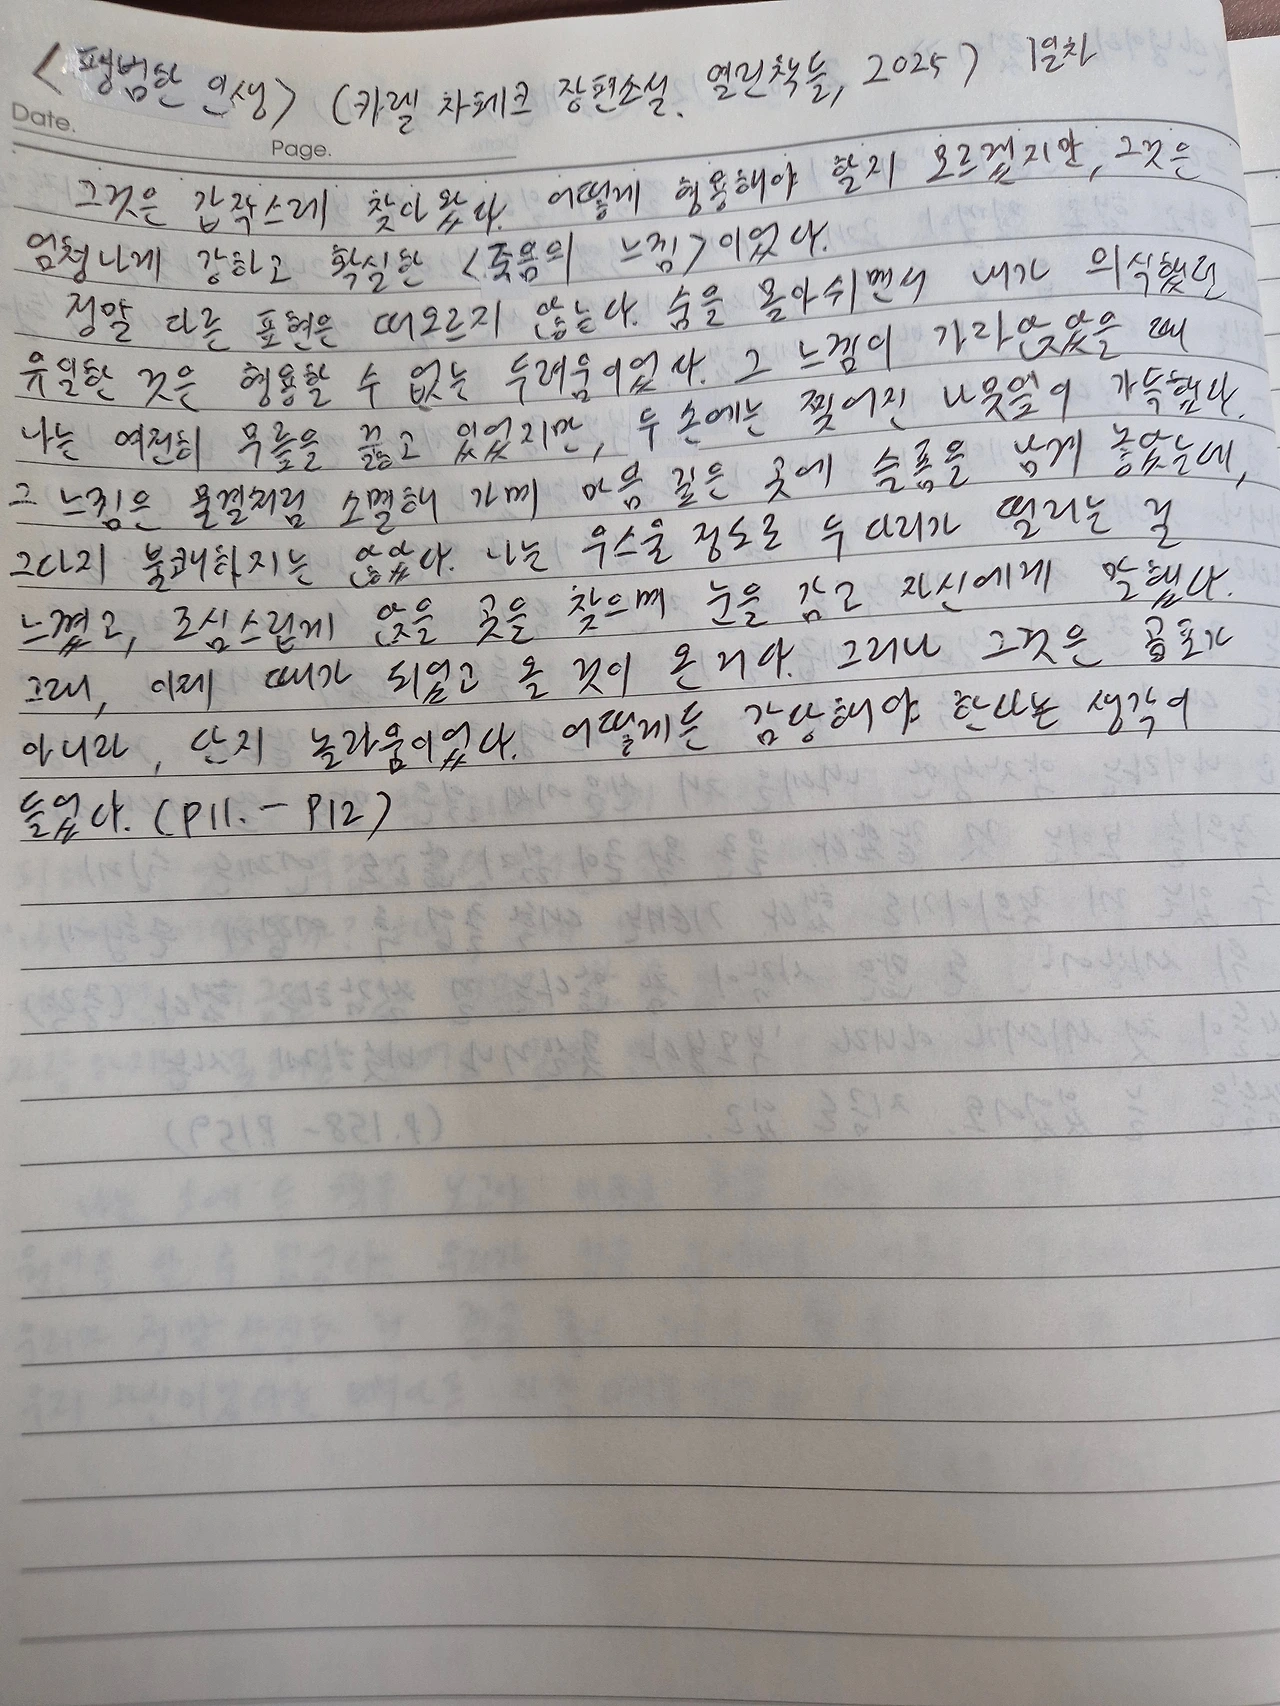 <평범한 인생> (카렐 차페크 장편소설. 열린책들, 2025) 1일차
Date.
Page.
그것은 갑작스레 찾아왔다. 어떻게 형용해야 할지 모르겠지만, 그것은
엄청나게 강하고 확실한 <죽음의 느낌>이었다.
정말 다른 표현은 떠오르지 않는다. 숨을 몰아쉬면서 내가 의식했던
유일한 것은 형용할 수 없는 두려움이었다. 그 느낌이 가라앉았을 때
나는 여전히 무릎을 꿇고 있었지만, 두 손에는 찢어진 나뭇잎이 가득했다.
그 느낌은 물결처럼 소멸해 가며 마음 깊은 곳에 슬픔을 남겨 놓았는데,
그다지 불쾌하지는 않았다. 나는 우스울 정도로 두 다리가 떨리는 걸
느꼈고, 조심스럽게 앉을 곳을 찾으며 눈을 감고 자신에게 말했다.
그래, 이제 때가 되었고 올 것이 온 거야. 그러나 그것은 공포가
아니라, 단지 놀라움이었다. 어떻게든 감당해야 한다는 생각이
들었다. (P11. - P12)